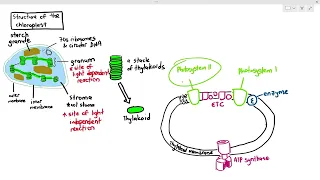 Structure of the
chloroplast
starch
granule
70s ribosomes
& circular DNA
granum
* site of
light dependent
reaction
a stack
of thylakoids
outer
membrane
inner
membrane
stroma
* site of light
independent
reaction
Thylakoid
Photosystem II
Photosystem I
ETC
enzyme
thylakoid membrane
ATP synthase